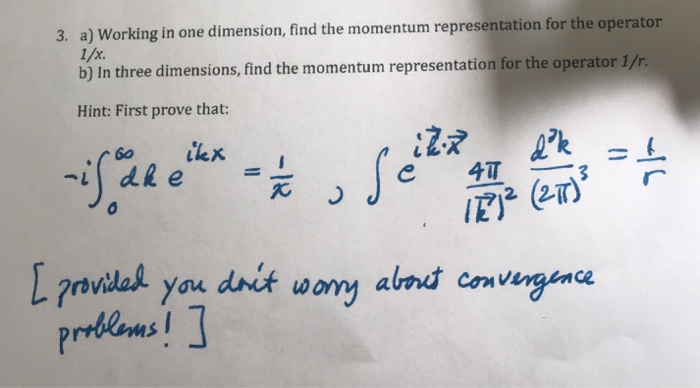 3. a) Working in one dimension, find the momentum representation for the operator
1/x.
b) In three dimensions, find the momentum representation for the operator 1/r.
Hint: First prove that:
-i∫₀^∞ dk e^{ikx} = 1/x , ∫ e^{i\vec{k}·\vec{x}} 4π/|\vec{k}|² d³k/(2π)³ = 1/r
[ provided you don't worry about convergence
problems! ]